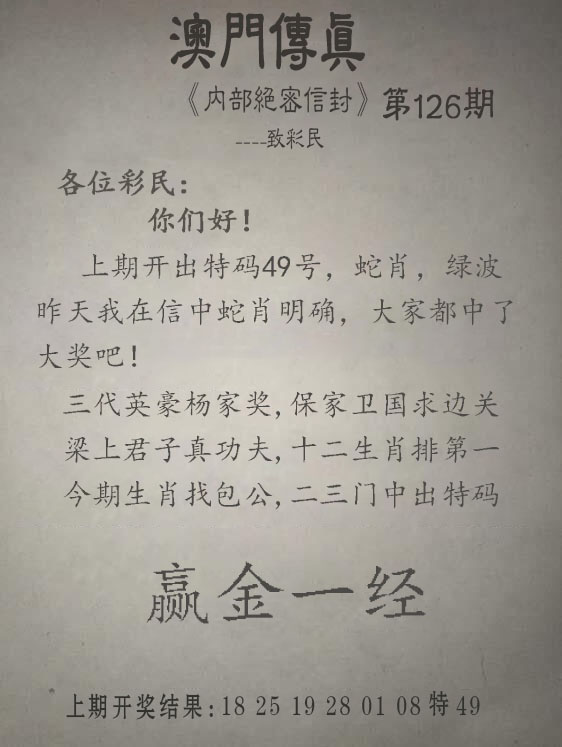 澳門傳真
《内部絕密信封》第126期
----致彩民
各位彩民：
你们好！
上期开出特码49号，蛇肖，绿波
昨天我在信中蛇肖明确，大家都中了
大奖吧！
三代英豪杨家奖,保家卫国求边关
梁上君子真功夫,十二生肖排第一
今期生肖找包公,二三门中出特码
赢金一经
上期开奖结果:18 25 19 28 01 08 特 49